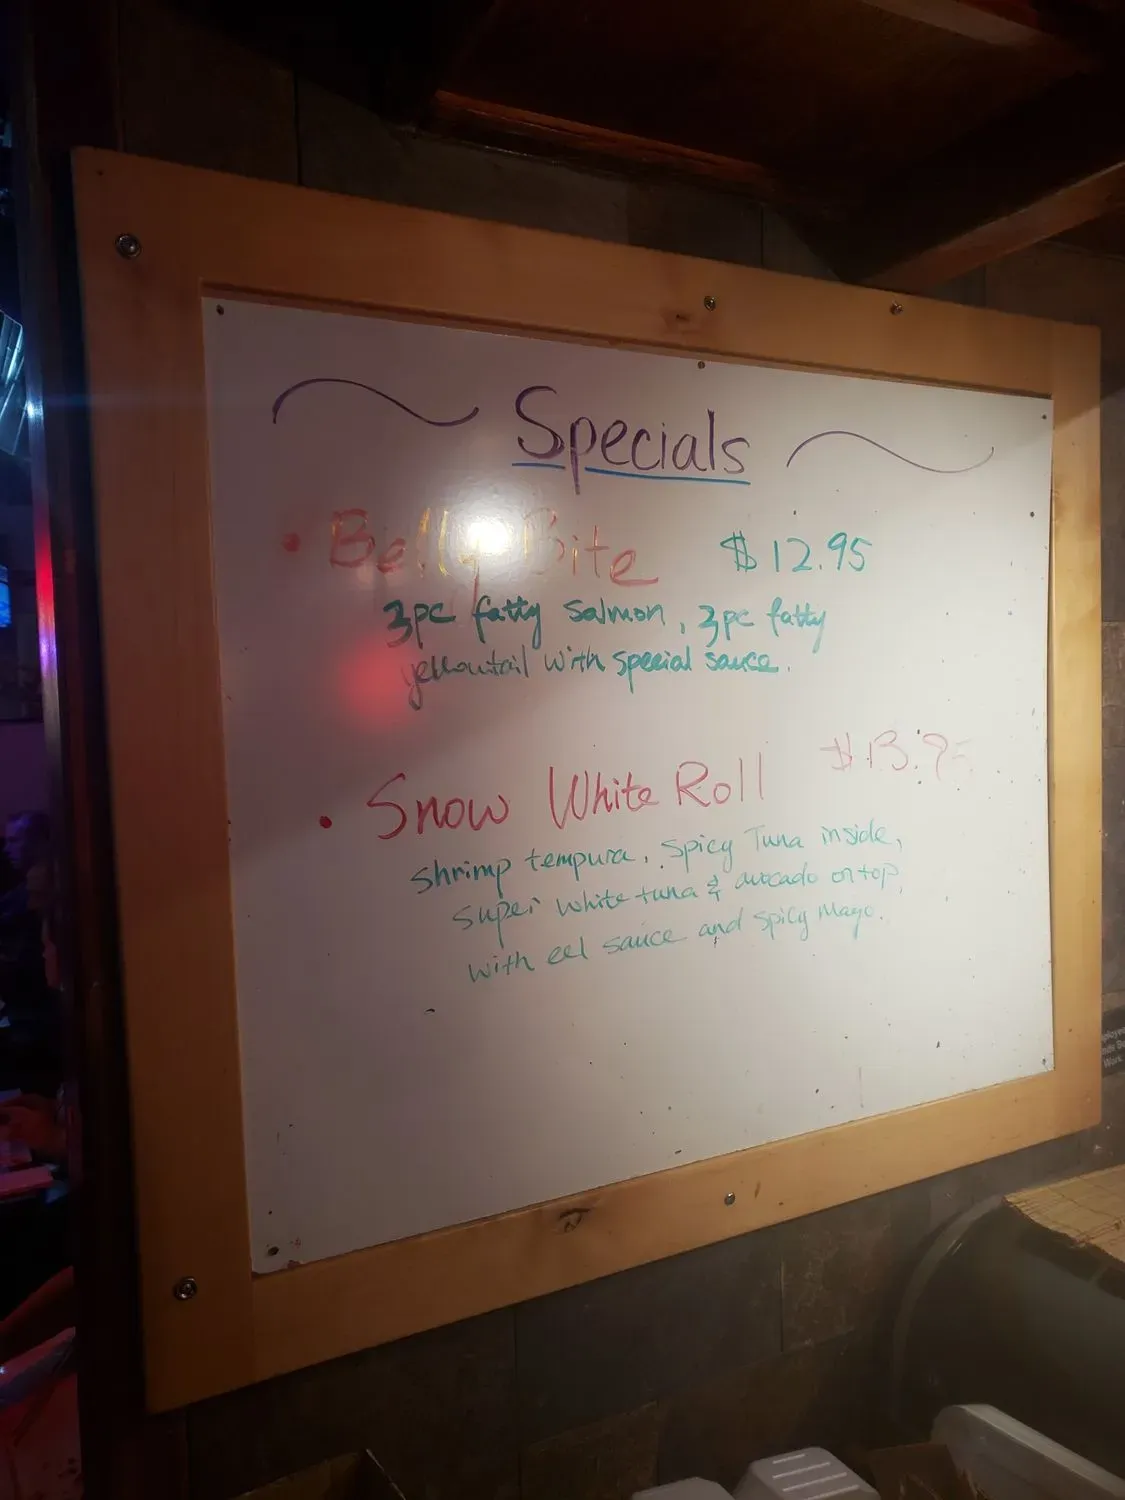 Specials
• Belly Bite $12.95
3pc fatty salmon, 3pc fatty
yellowtail with special sauce.
• Snow White Roll $13.95
shrimp tempura, spicy Tuna inside,
super white tuna & avocado on top,
with eel sauce and spicy mayo.